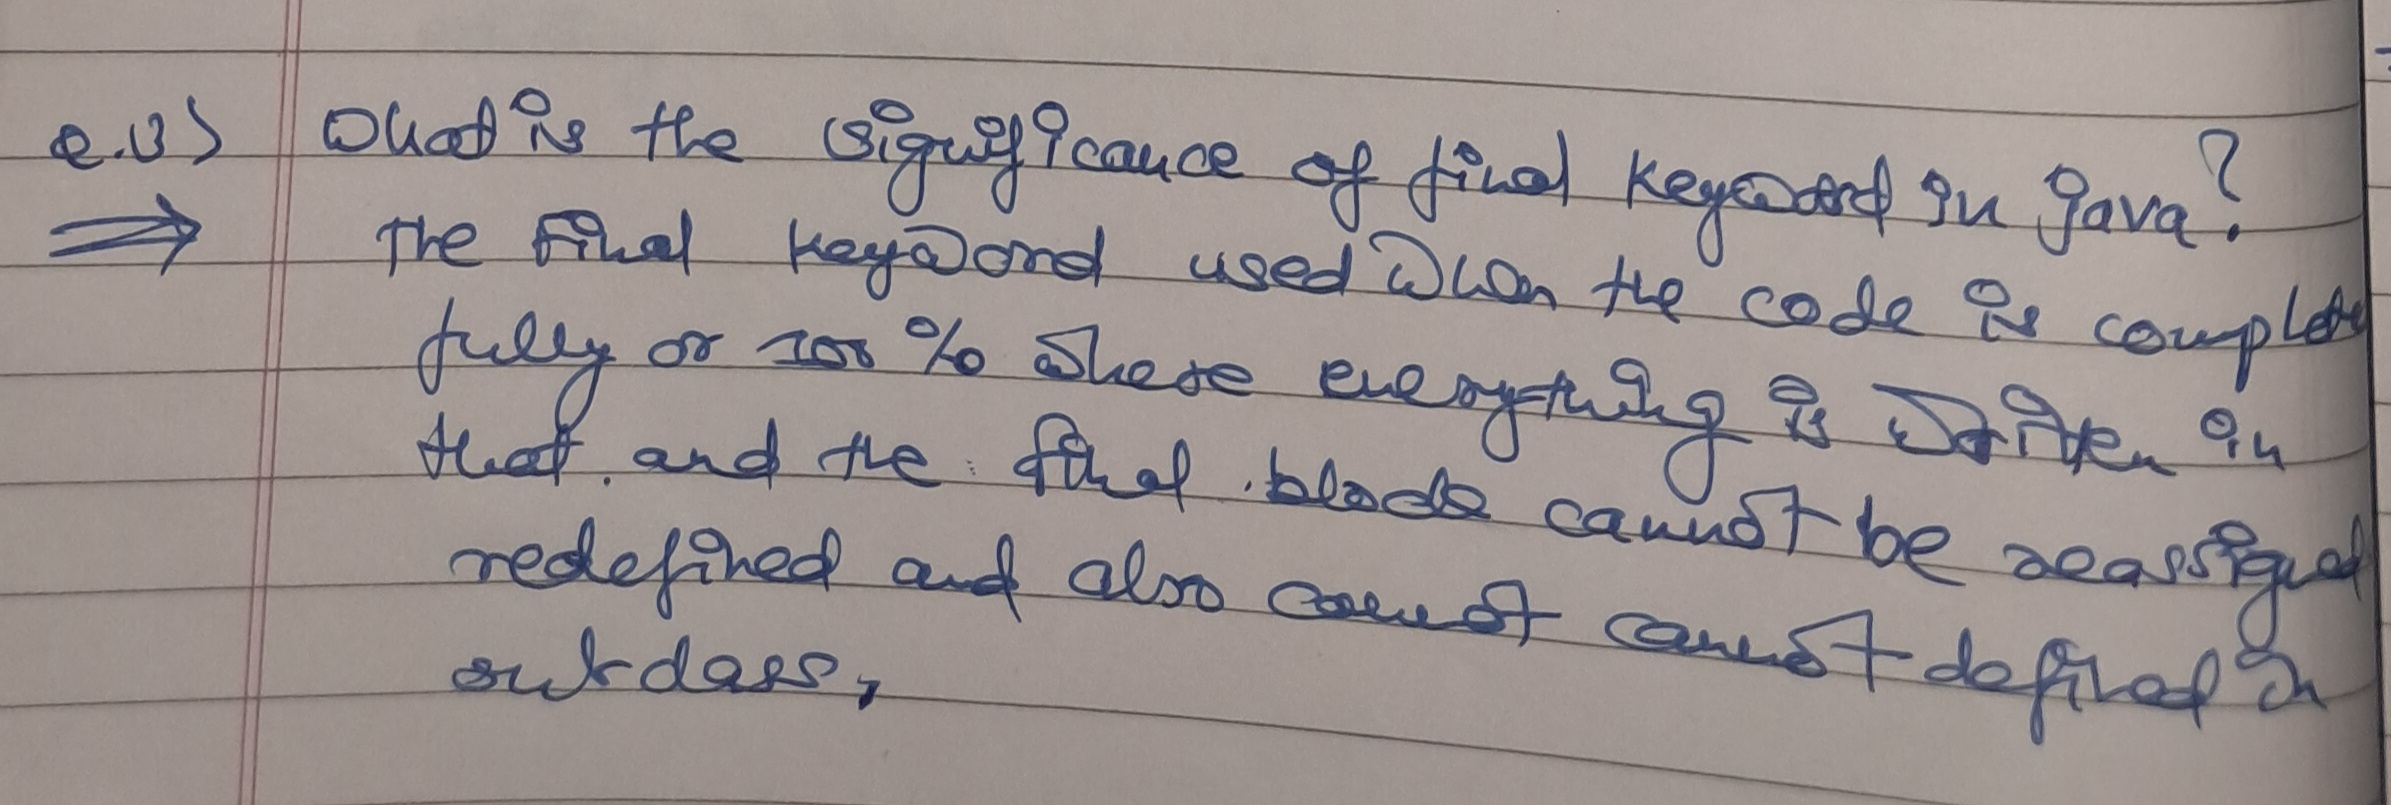 Q.3) What is the significance of final keyword in java?
⇒ The final keyword used when the code is complete
fully or 100 % where everything is written in
that. and the final block cannot be reassigned
redefined and also cannot cannot defined in
subclass,